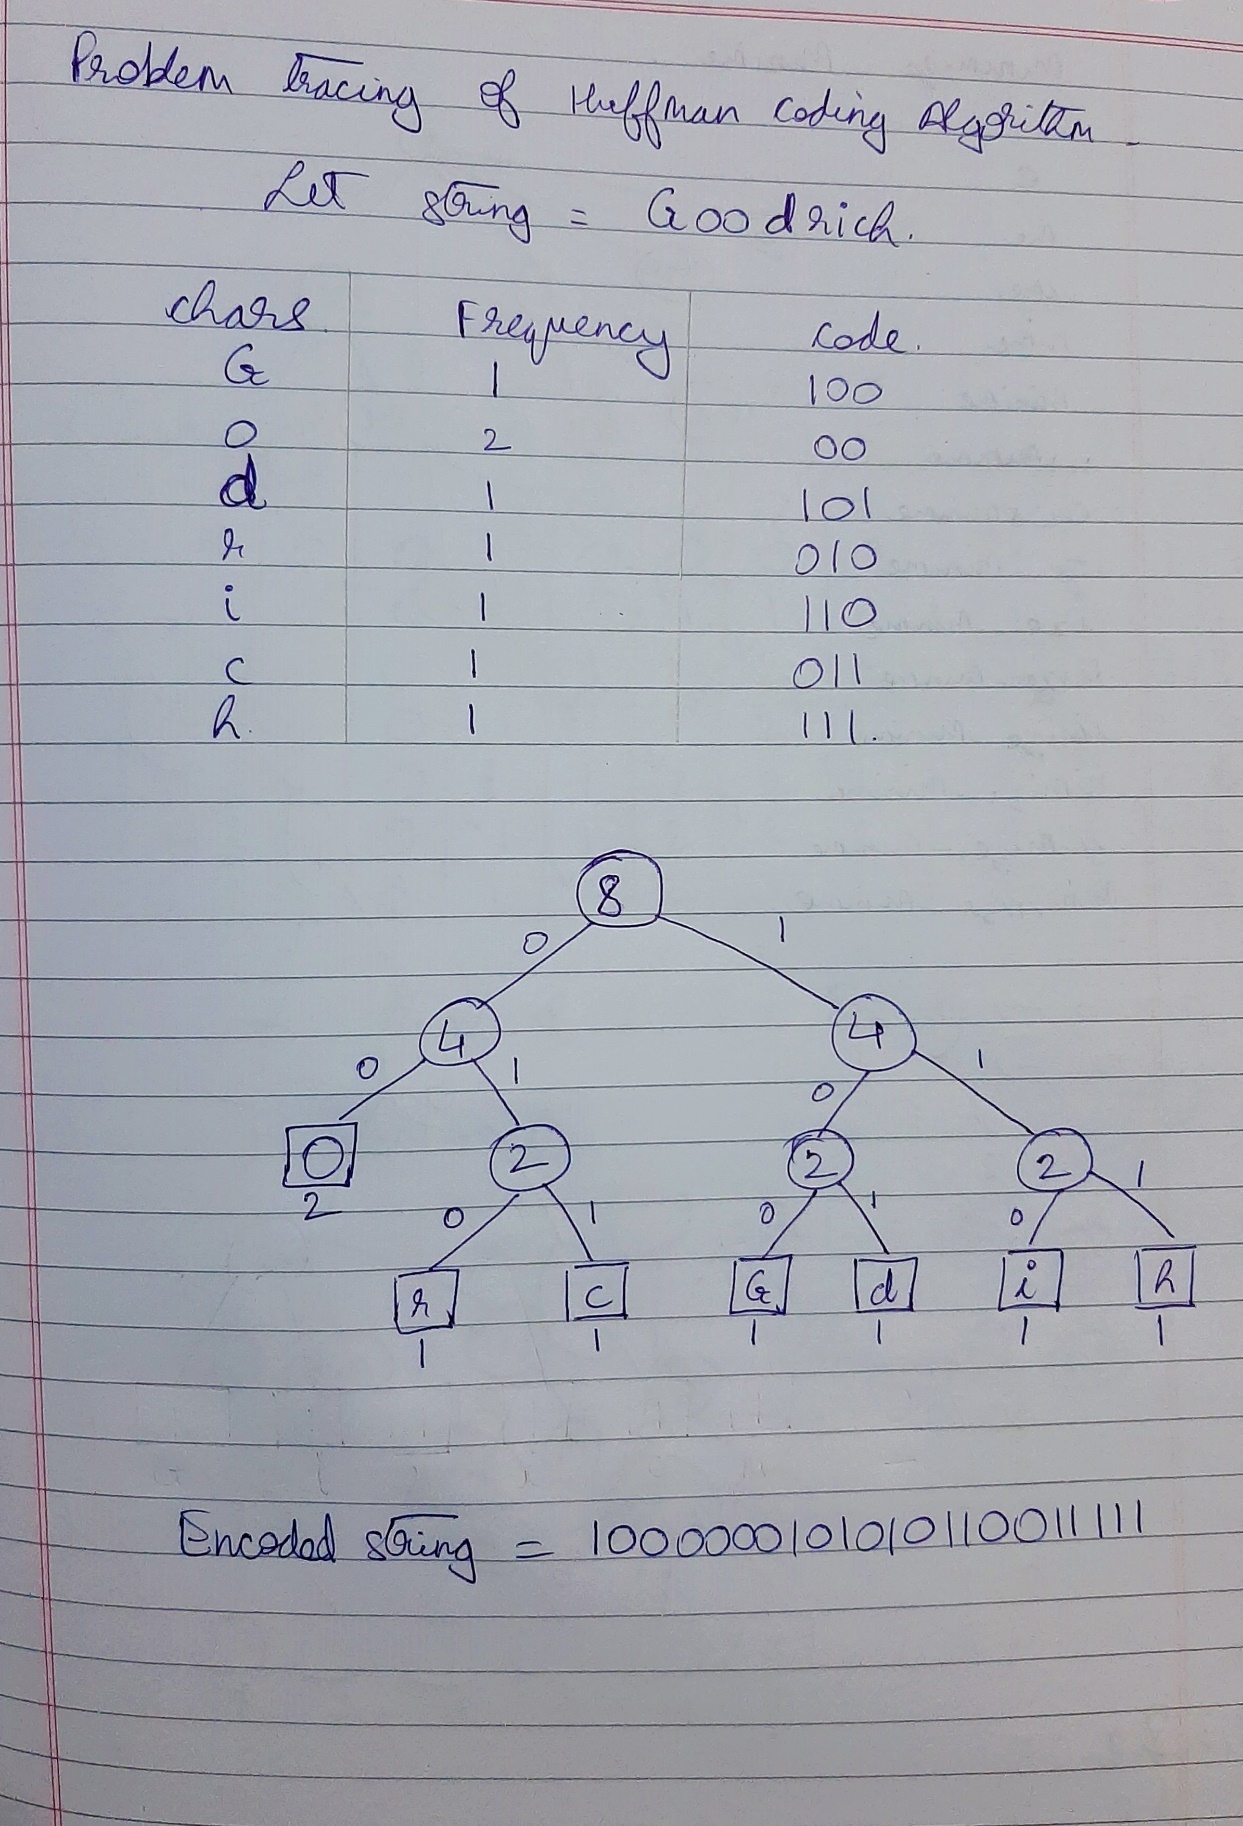 Problem tracing of Huffman Coding Algorithm.
Let string = Goodrich.
chars. Frequency code.
G 1 100
o 2 00
d 1 101
r 1 010
i 1 110
c 1 011
h. 1 111.
8
0 1
4 4
0 1 0 1
O 2 2 2
2 0 1 0 1 0 1
r c G d i h
1 1 1 1 1 1
Encoded string = 1000000101010110011111